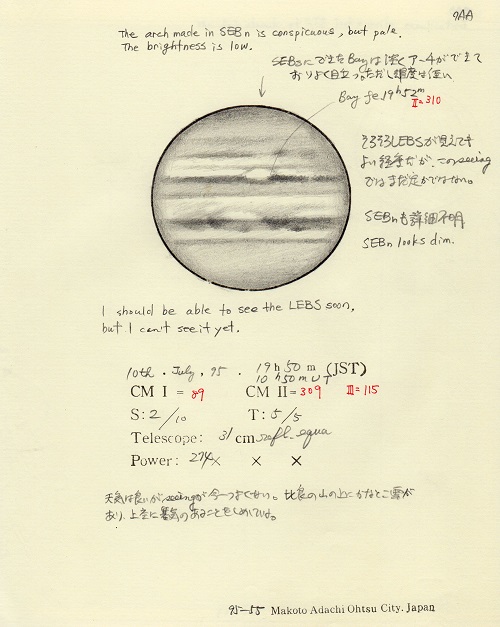 9AA
The arch made in SEBn is conspicuous, but pale.
The brightness is low.
SEBsにできたBayは淡くアーチができて
おりよく目立つ。ただし輝度は低い
Bay fe. 19h52m
II=310
そろそろLEBSが見えても
よい経度だが、このseeing
ではまだ定かではない。
SEBnも詳細不明
SEBn looks dim.
I should be able to see the LEBS soon,
but I can't see it yet.
10th. July, '95. 19h50m (JST)
10h50m UT
CM I = 89 CM II = 309 III=115
S: 2/10 T: 5/5
Telescope: 31 cm refl. equa
Power: 274× × ×
天気は良いがseeingが今一つよくない。比良の山の上にかなとこ雲が
あり、上空に寒気のあることをしめしている。
95-55 Makoto Adachi Ohtsu City. Japan